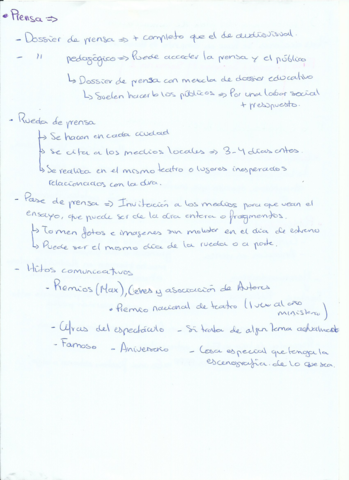 • Prensa ⇒
- Dossier de prensa ⇒ + completo que el de audiovisual.
- " pedagógico ⇒ Puede acceder la prensa y el público
↳ Dossier de prensa con mezcla de dossier educativo
↳ Suelen hacerlo los públicos ⇒ Por una labor social
+ presupuesto.
- Rueda de prensa
↳ Se hacen en cada ciudad
↳ se cita a los medios locales ⇒ 3-4 días antes
↳ Se realiza en el mismo teatro o lugares inesperados
relacionados con la obra.
- Pase de prensa ⇒ Invitación a los medios para que vean el
ensayo, que puede ser de la obra entera o fragmentos.
↳ Tomen fotos e imagenes sin molestar en el día de estreno
↳ Puede ser el mismo día de la rueda o a parte.
- Hitos comunicativos
- Premios (Max), Ceres y asociación de Autores
• Premio nacional de teatro (1 vez al año
ministerio)
- Cifras del espectáculo - Si trata de algun tema actualmente
- Famoso - Aniversario - Cosa especial que tenga la
escenografía de lo que sea.